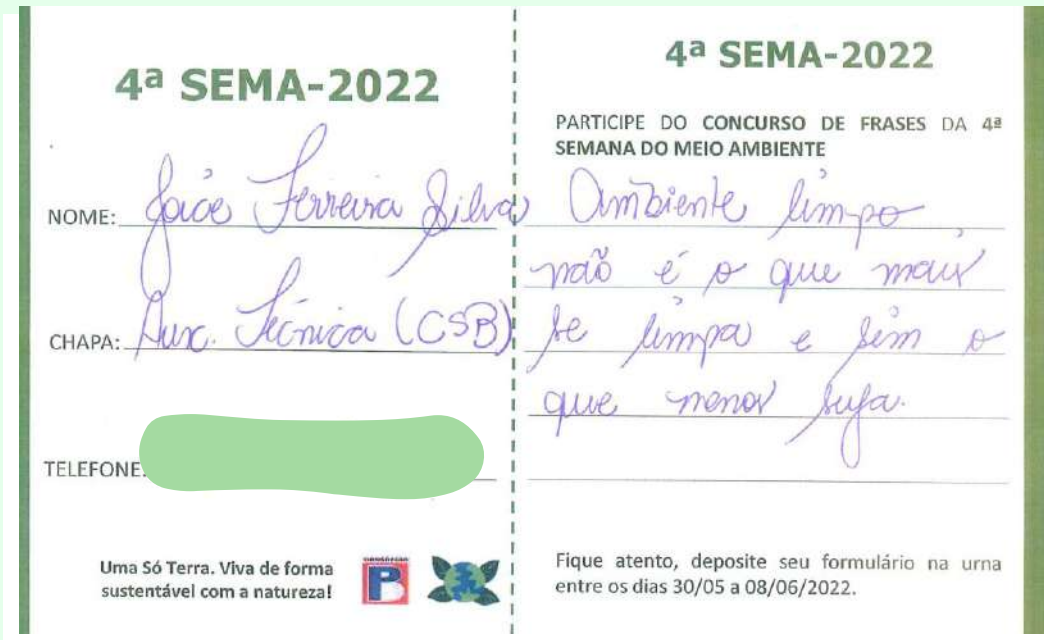 4ª SEMA-2022
NOME: Joice Ferreira Silva
CHAPA: Aux. Técnica (CSB)
TELEFONE:
Uma Só Terra. Viva de forma
sustentável com a natureza!
B
4ª SEMA-2022
PARTICIPE DO CONCURSO DE FRASES DA 4ª
SEMANA DO MEIO AMBIENTE
Ambiente limpo
não é o que mais
se limpa e sim o
que menos suja.
Fique atento, deposite seu formulário na urna
entre os dias 30/05 a 08/06/2022.